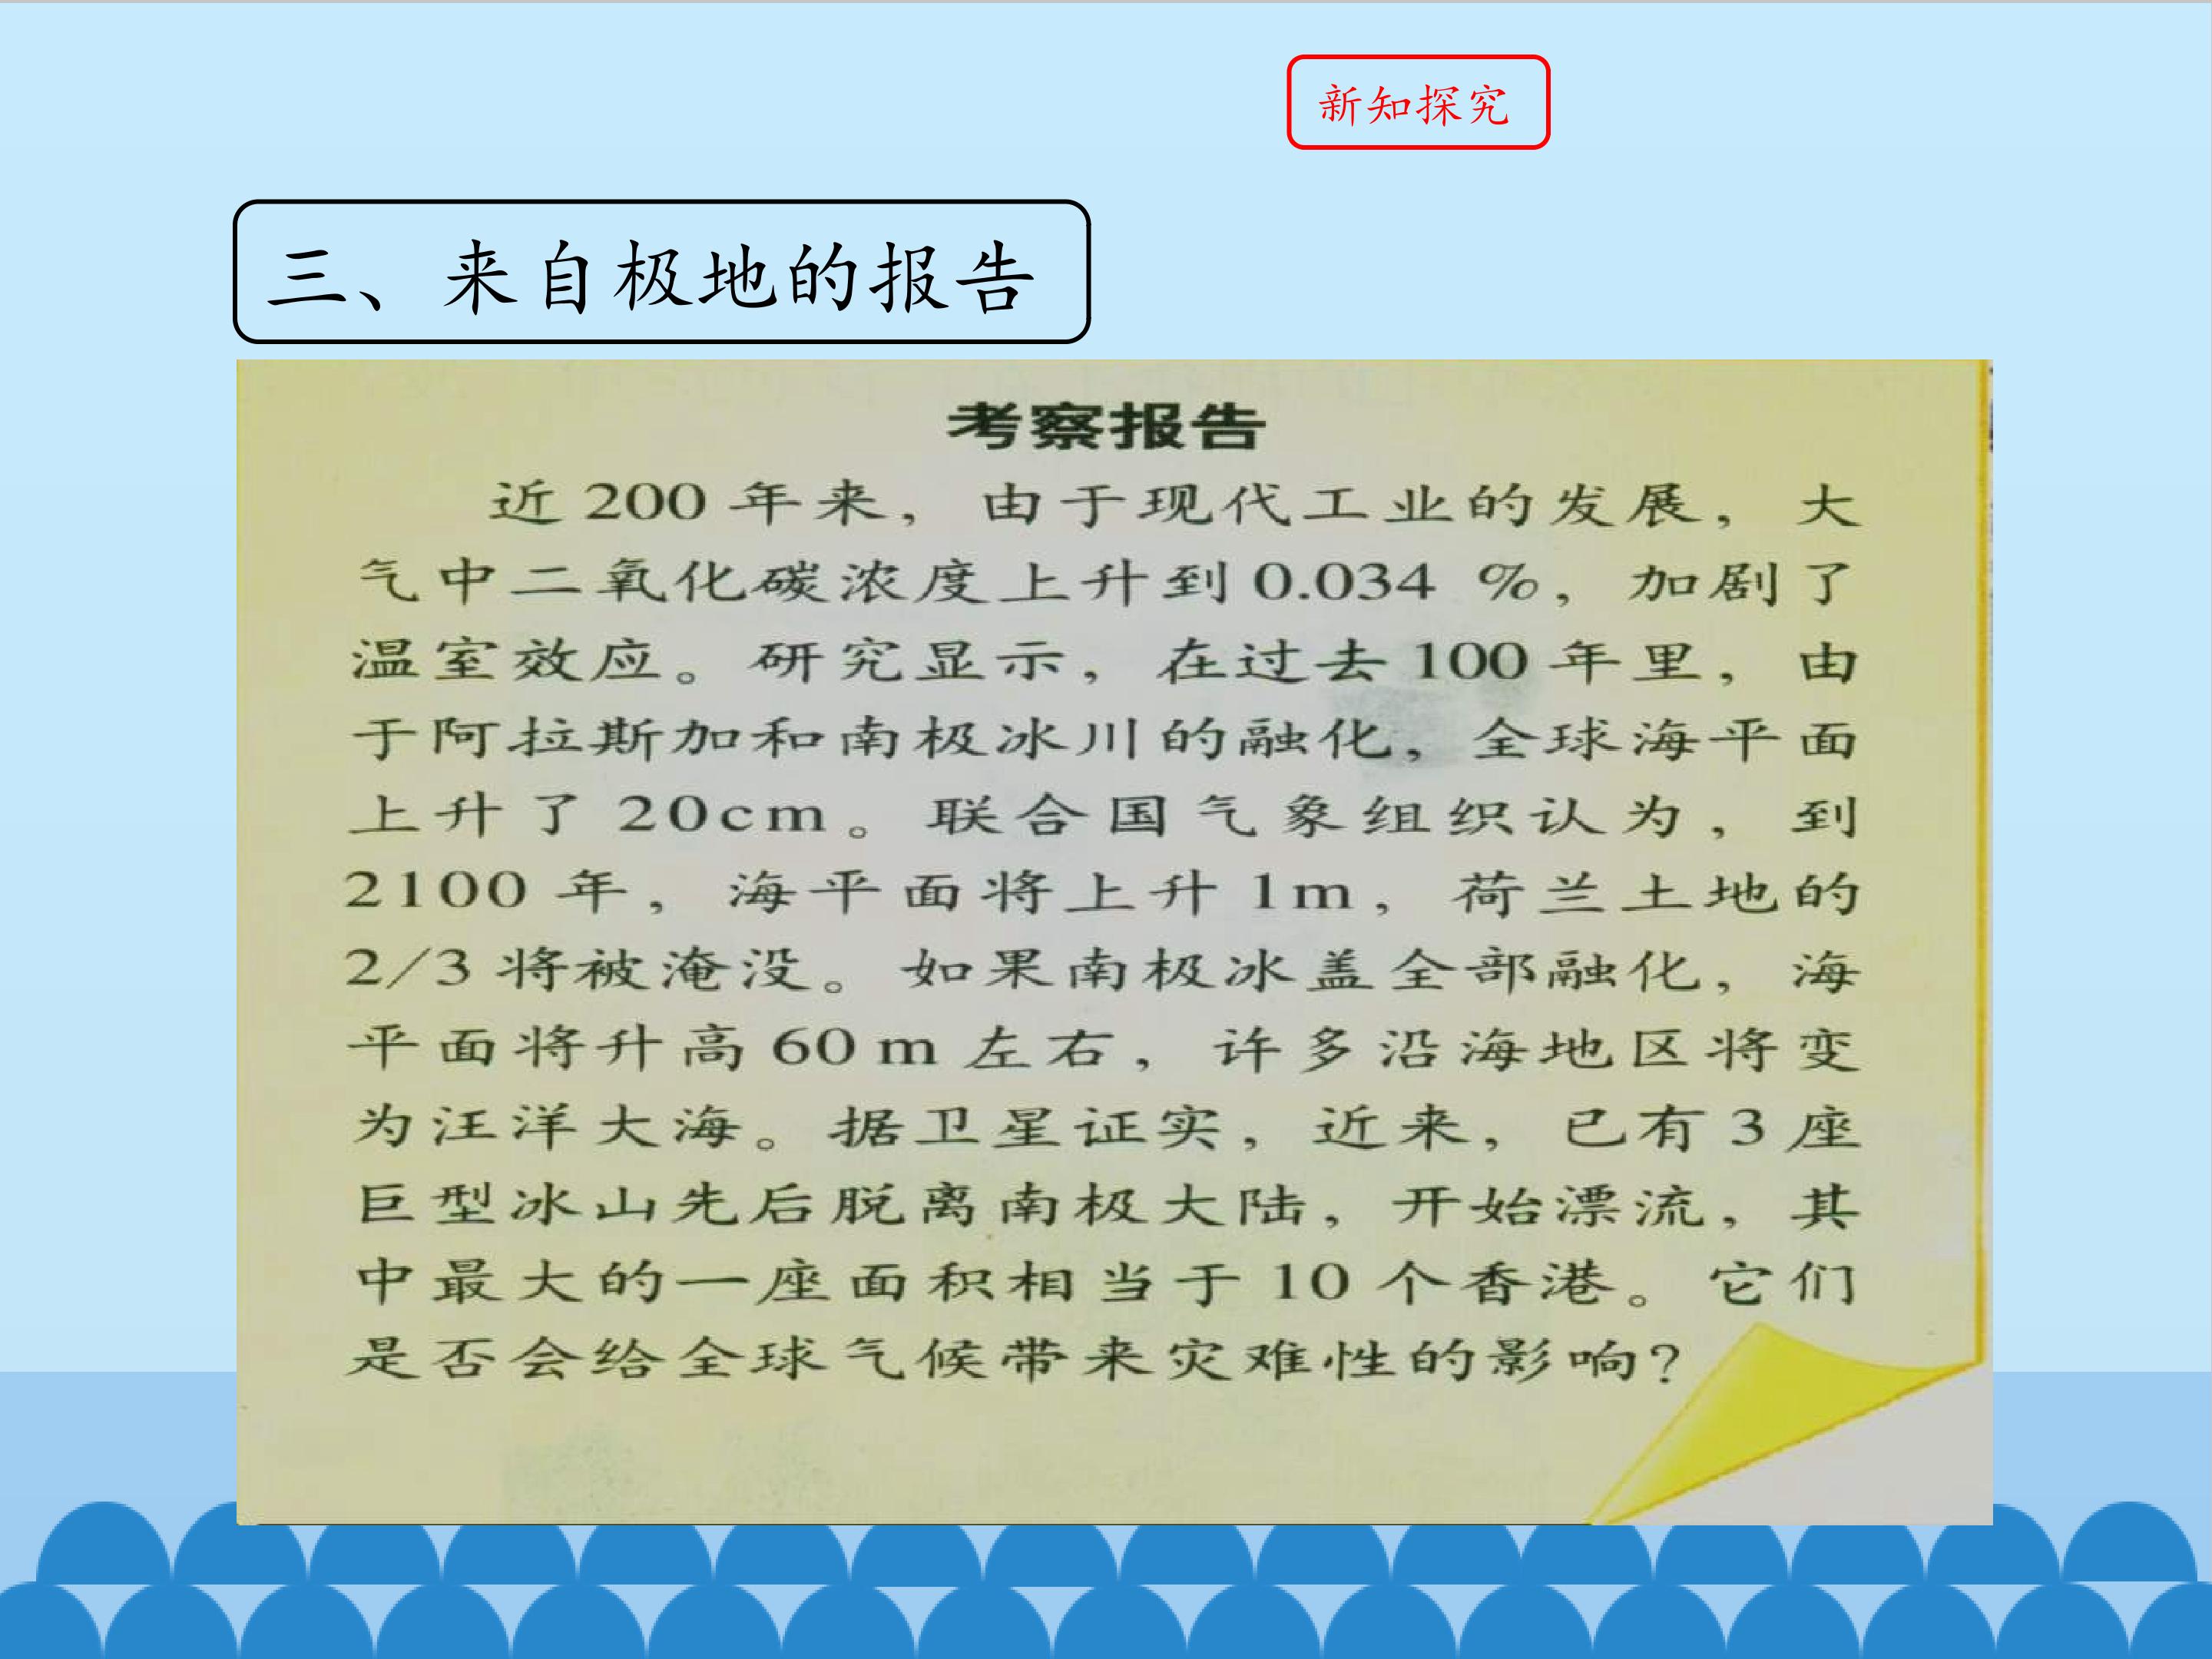 新知探究
三、来自极地的报告
考察报告
近200年来，由于现代工业的发展，大
气中二氧化碳浓度上升到0.034 %，加剧了
温室效应。研究显示，在过去100年里，由
于阿拉斯加和南极冰川的融化，全球海平面
上升了20cm。联合国气象组织认为，到
2100年，海平面将上升1m，荷兰土地的
2/3将被淹没。如果南极冰盖全部融化，海
平面将升高60m左右，许多沿海地区将变
为汪洋大海。据卫星证实，近来，已有3座
巨型冰山先后脱离南极大陆，开始漂流，其
中最大的一座面积相当于10个香港。它们
是否会给全球气候带来灾难性的影响？